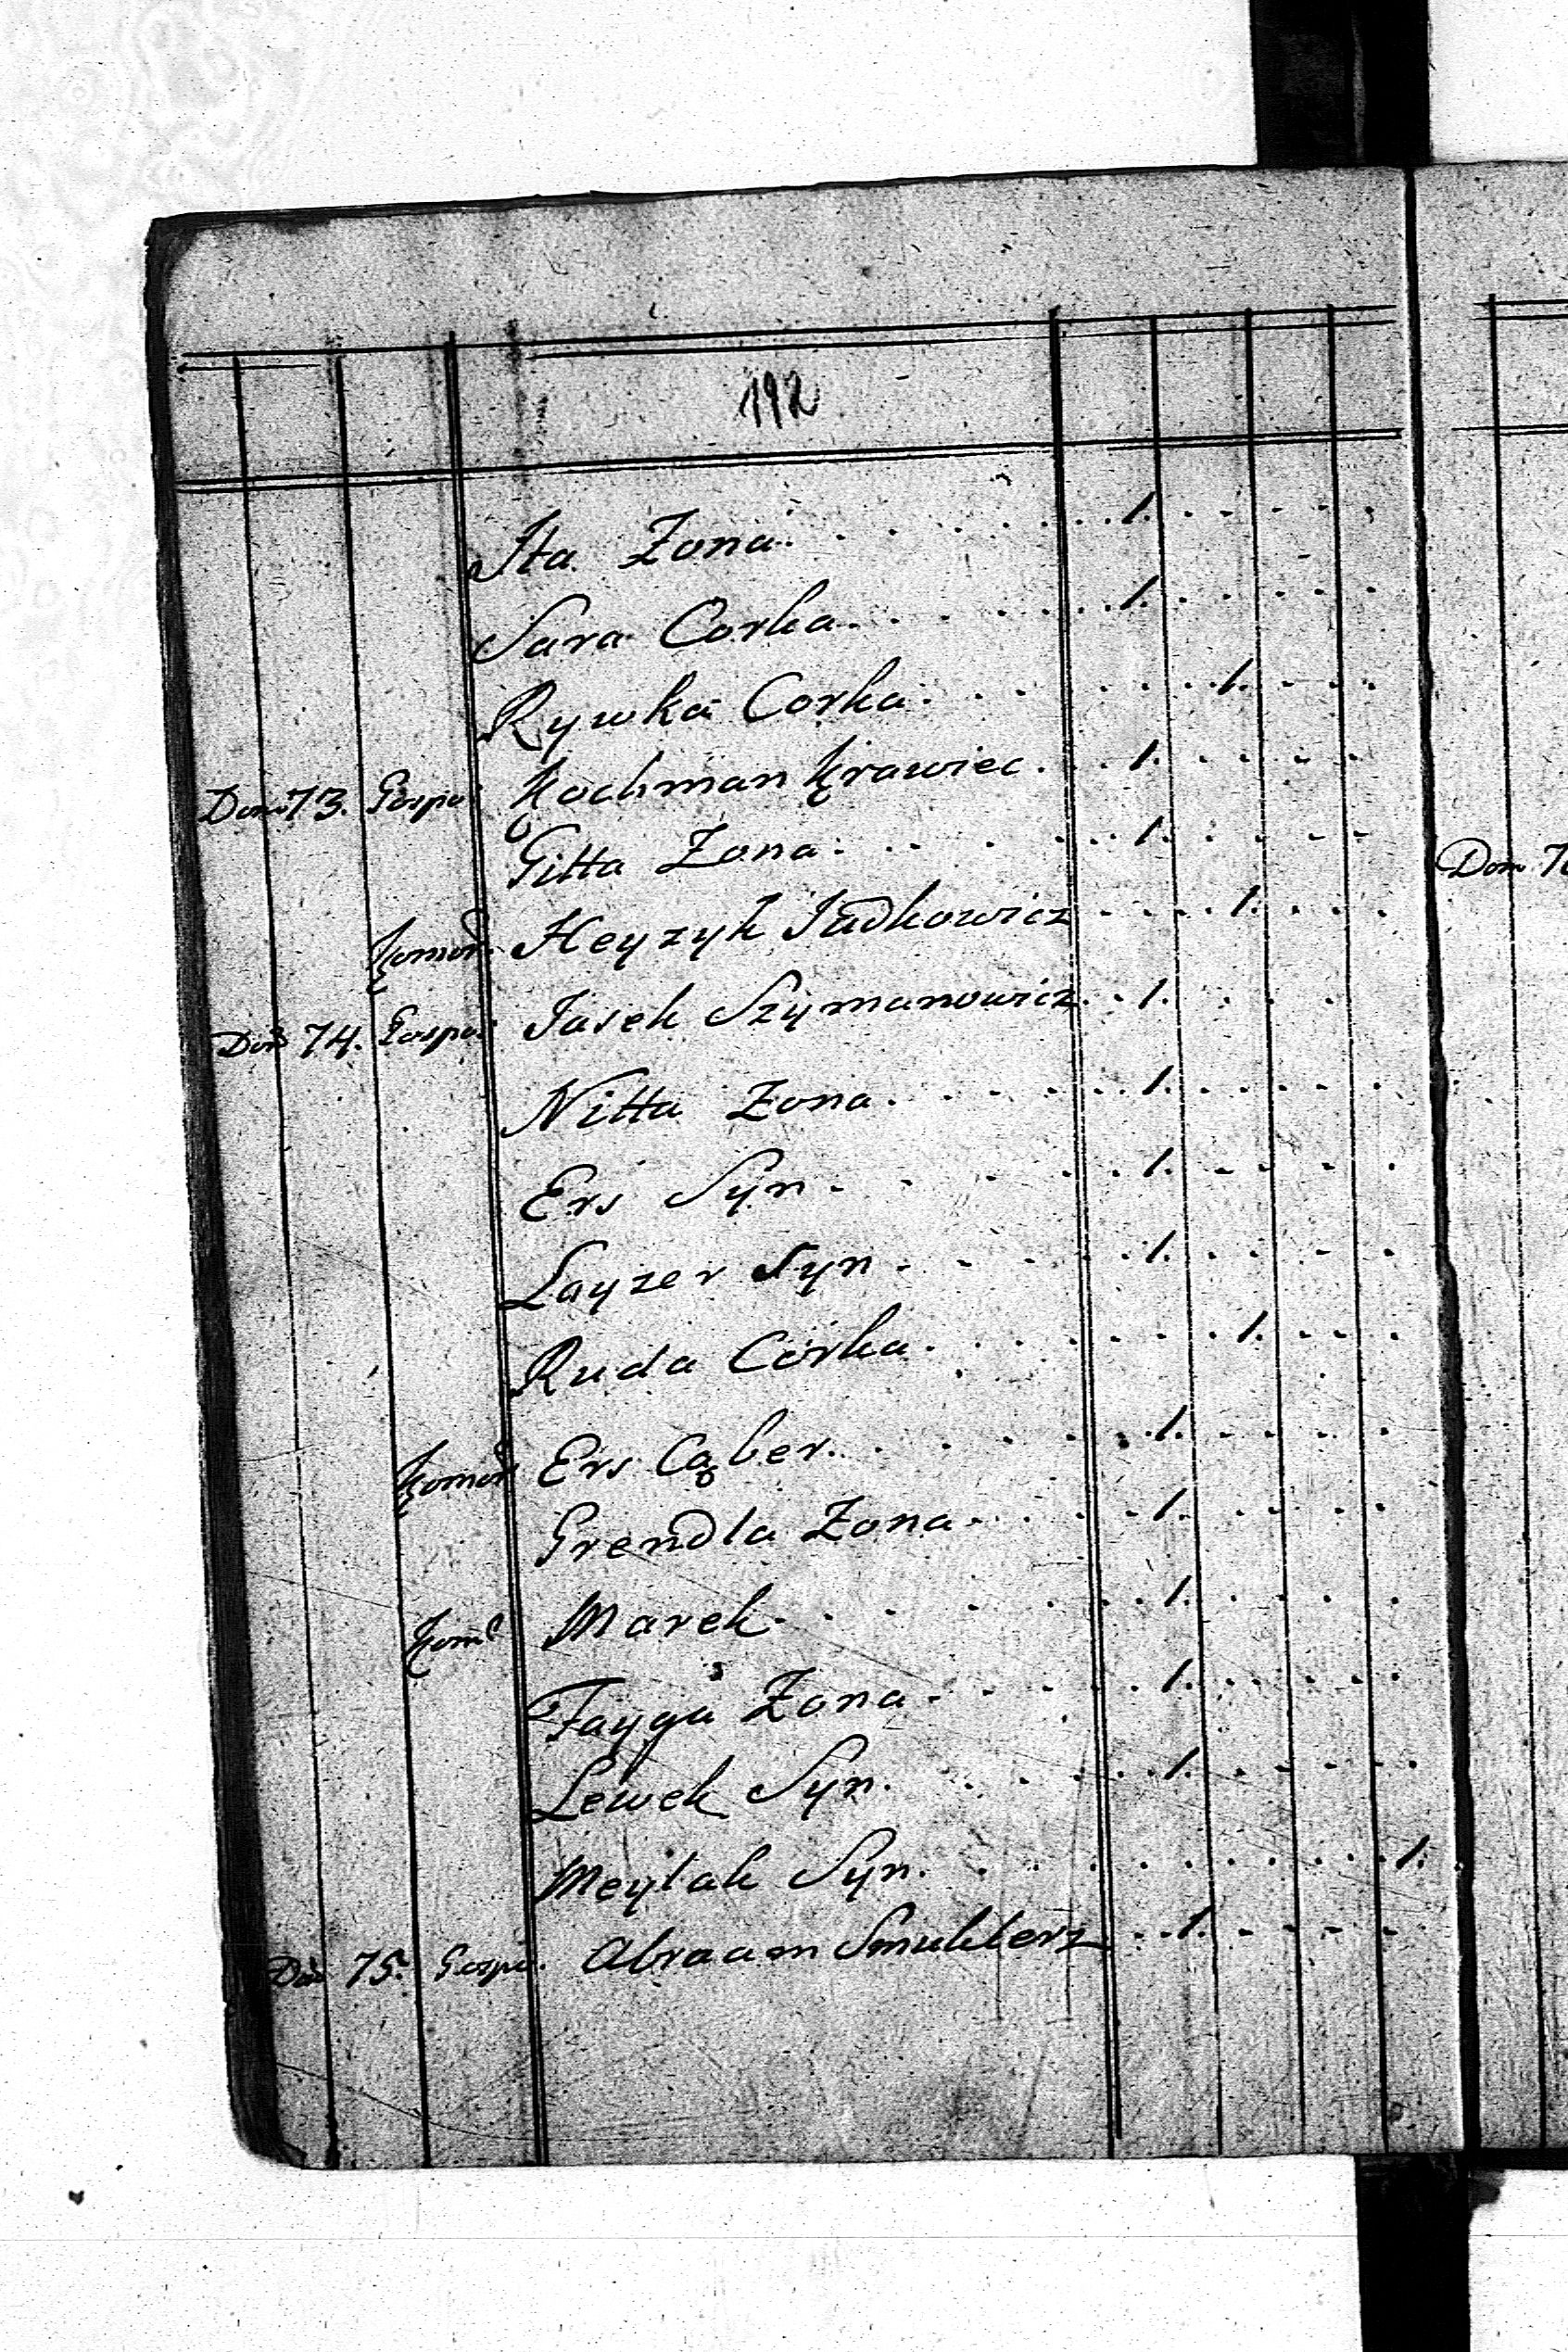 192
Ita Zona . . . . . . . 1. . . . . .
Sara Corka . . . . . . 1. . . . . .
Rywka Corka . . . . . . . 1. . . .
Dom 73. Gospo: Kochman Krawiec . . . 1. . . . .
Gitta Zona : . . . . . 1. . . . . Dom 7
Komor. Heyzyk Judkowicz . . . . 1. . . .
Dom 74. Gospo: Jasek Szymanowicz . . 1. . . .
Nitta Zona . . . . . . 1. . . . .
Ers Syn . . . . . 1. . . . .
Layzer Syn . . . . . 1. . . . .
Ruda Córka . . . . . . . 1. . . .
Komor Ers Cąber . . . . . . 1. . . . .
Grendla Zona . . . . . 1. . . . .
Kom Marek . . . . . . 1. . . . .
Fayga Zona . . . . . 1. . . . .
Lewek Syn . . . . . 1. . . . .
Meylak Syn . . . . . . . . . . 1.
Dom 75. Gospo. Abraam Smuklerz . . 1. . . . .